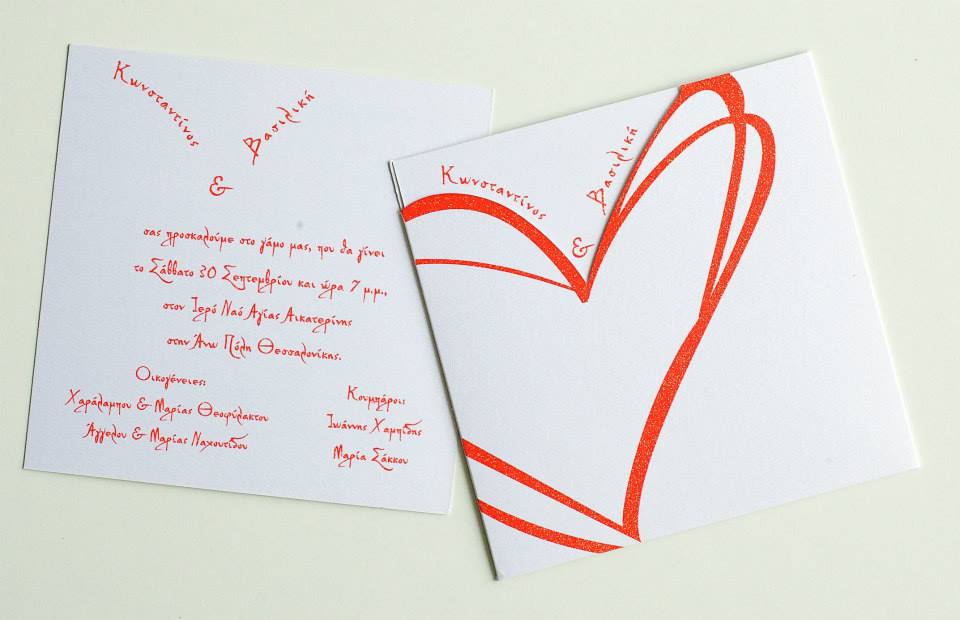 Κωνσταντίνος
&
Βασιλική
σας προσκαλούμε στο γάμο μας, που θα γίνει
το Σάββατο 30 Σεπτεμβρίου και ώρα 7 μ.μ.,
στον Ιερό Ναό Αγίας Αικατερίνης
στην Άνω Πόλη Θεσσαλονίκης.
Οικογένειες:
Χαράλαμπου & Μαρίας Θεοφύλακτου
Άγγελου & Μαρίας Ναχουτίδου
Κουμπάροι:
Ιωάννης Χαμπίδης
Μαρία Σάκκου
Κωνσταντίνος
&
Βασιλική